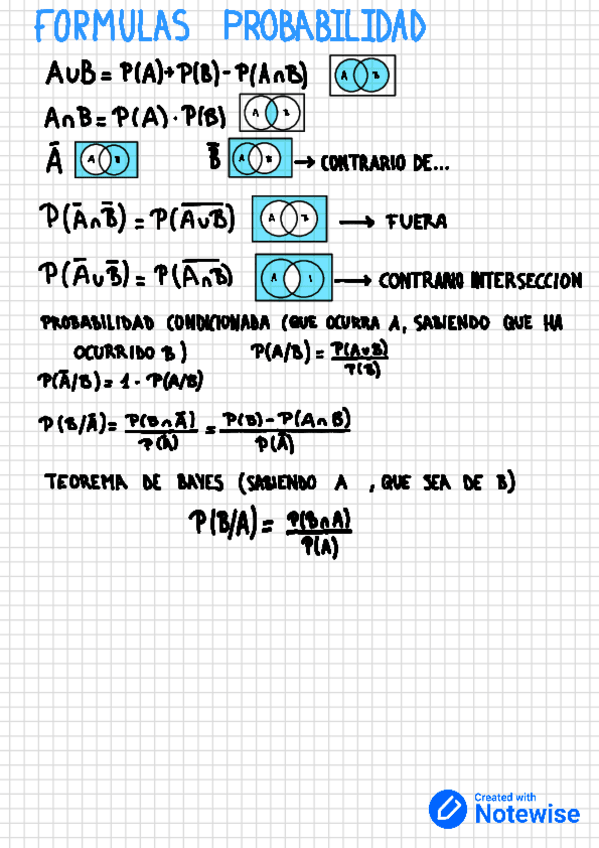 FORMULAS PROBABILIDAD
A∪B = P(A)+P(B)-P(A∩B) A B
A∩B = P(A)·P(B) A B
Ā A B B̿ A B → CONTRARIO DE...
P(Ā∩B̄) = P(A̅∪̅B̅) A B → FUERA
P(Ā∪B̄) = P(A̅∩̅B̅) A → CONTRARIO INTERSECCION
PROBABILIDAD CONDICIONADA (QUE OCURRA A, SABIENDO QUE HA
OCURRIDO B) P(A/B) = P(A∪B)/P(B)
P(Ā/B) = 1 - P(A/B)
P(B/Ā) = P(B∩Ā)/P(Ā) = P(B)-P(A∩B)/P(Ā)
TEOREMA DE BAYES (SABIENDO A , QUE SEA DE B)
P(B/A) = P(B∩A)/P(A)
Created with
Notewise